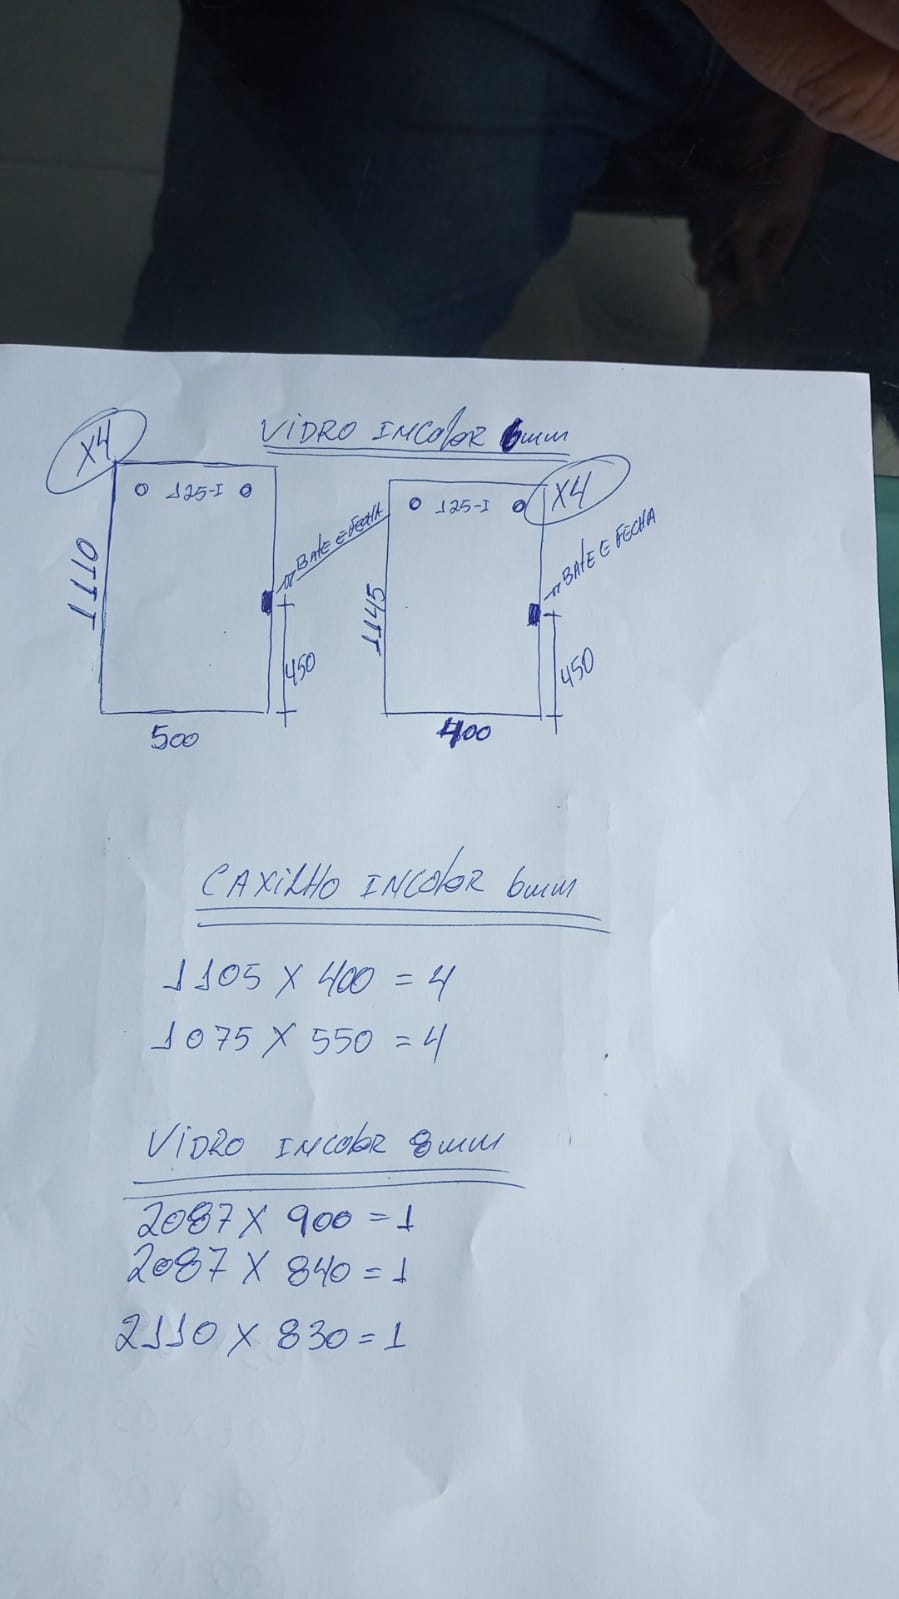 VIDRO INCOLOR 6mm
X4
125-I
1110
BATE E FECHA
450
500
X4
125-I
1145
BATE E FECHA
450
400
CAXILHO INCOLOR 6mm
1105 X 400 = 4
1075 X 550 = 4
VIDRO INCOLOR 8mm
2087 X 900 = 1
2087 X 840 = 1
2110 X 830 = 1